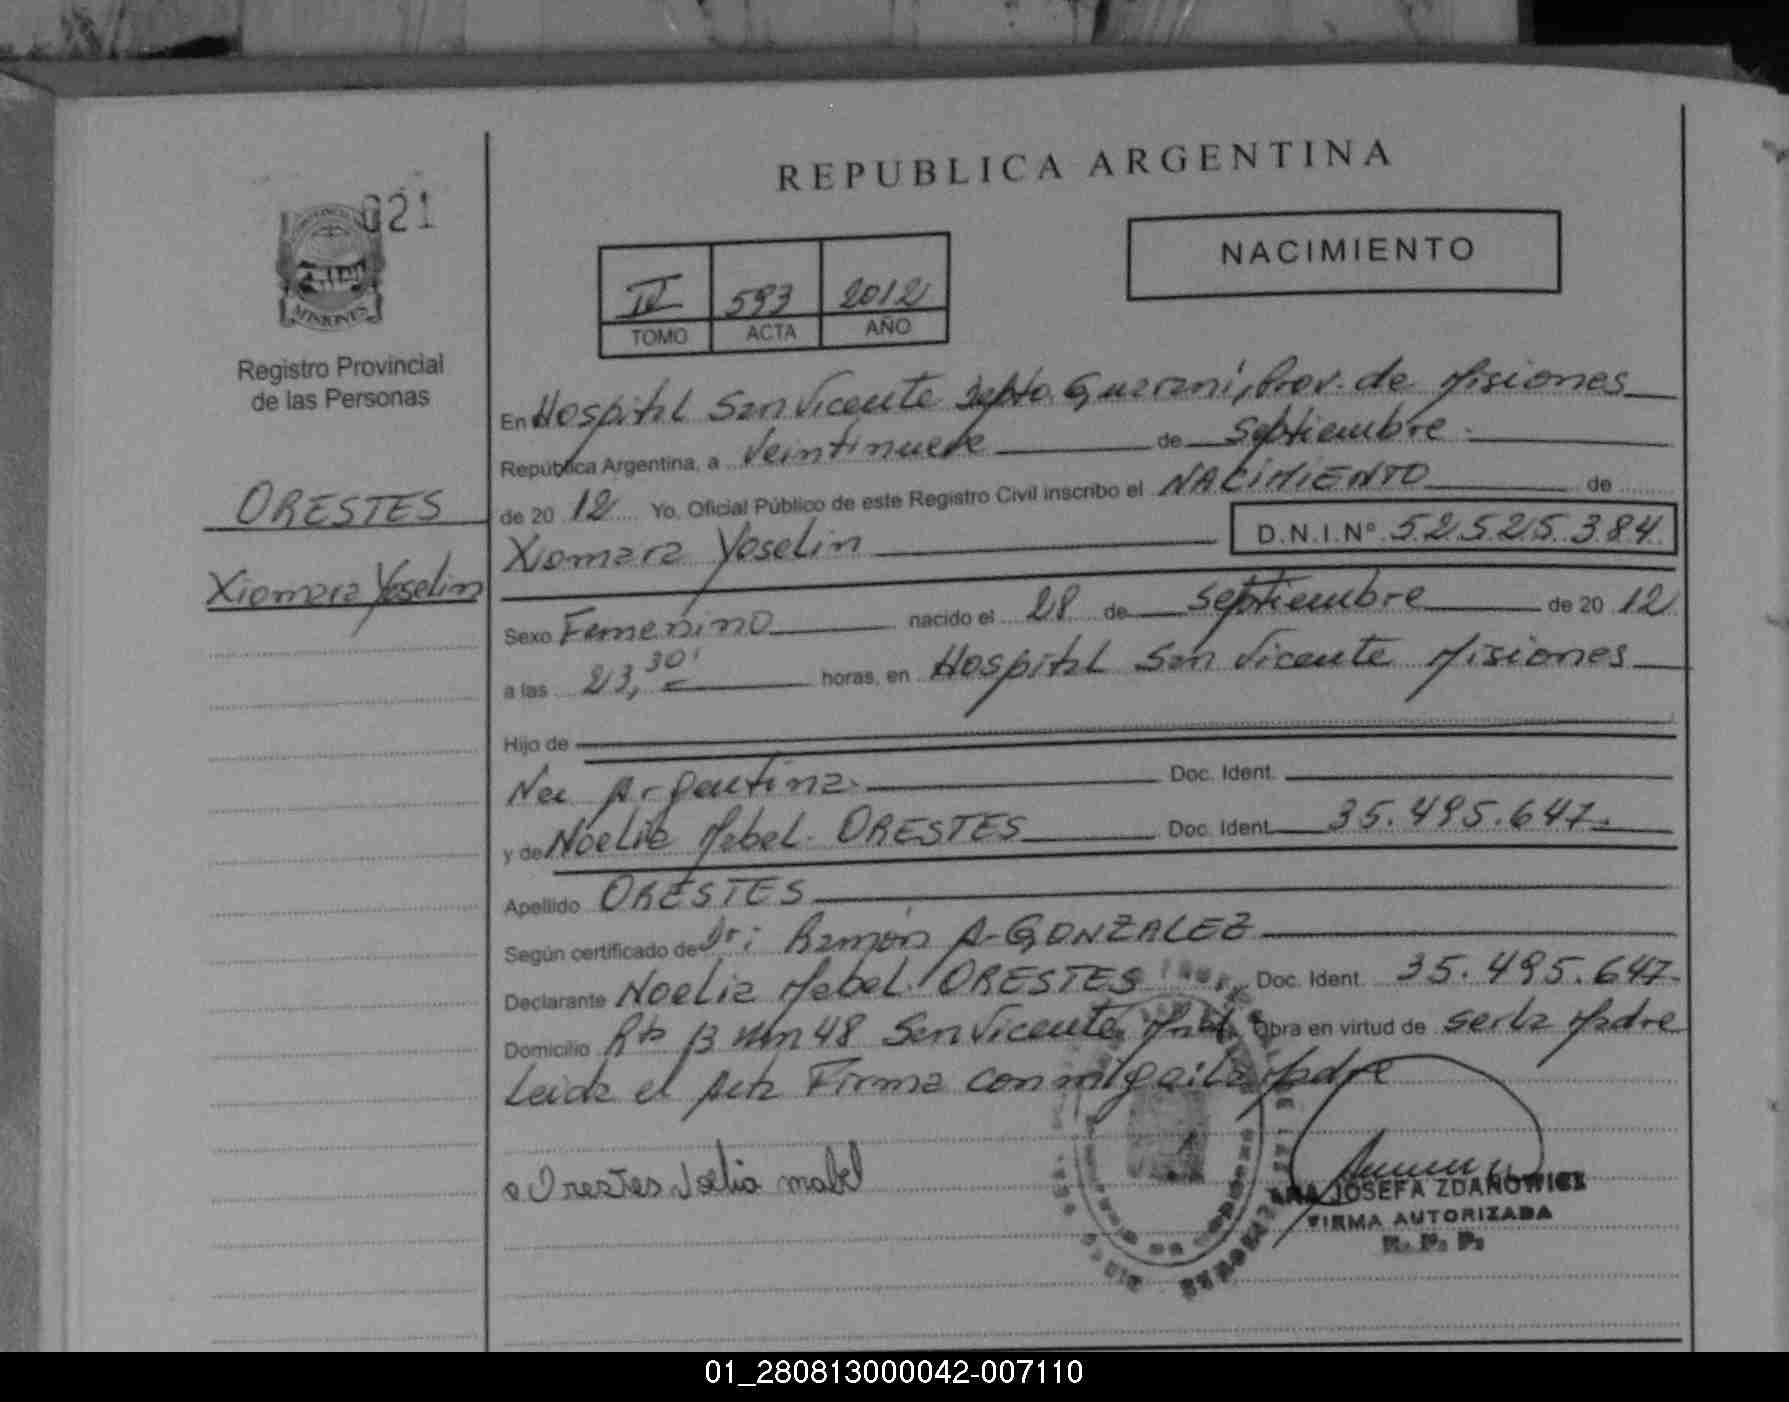 REPUBLICA ARGENTINA
021
NACIMIENTO
IV 593 2012
TOMO ACTA AÑO
MISIONES
Registro Provincial
de las Personas
En Hospital San Vicente Depto. Guarani, Prov. de Misiones
República Argentina, a veintinueve de septiembre
de 20 12 Yo, Oficial Público de este Registro Civil inscribo el NACIMIENTO de
ORESTES
Xiomara Yoselin D.N.I.Nº 52525384
Xiomara Yoselin
Sexo Femenino nacido el 28 de septiembre de 20 12
a las 23,30' horas, en Hospital San Vicente Misiones
Hijo de
Nac Argentina Doc. Ident.
y de Noelia Mabel ORESTES Doc. Ident. 35.495.647
Apellido ORESTES
Según certificado de Dr: Ramón A. GONZALEZ
Declarante Noelia Mabel ORESTES Doc. Ident. 35.495.647
Domicilio Rta 13 Km 48 San Vicente Obra en virtud de ser la Madre
Leida el Acta Firma conmigo la Madre
Orestes Noelia mabel
ANA JOSEFA ZDANOWICZ
FIRMA AUTORIZADA
R. P. P.
01_280813000042-007110